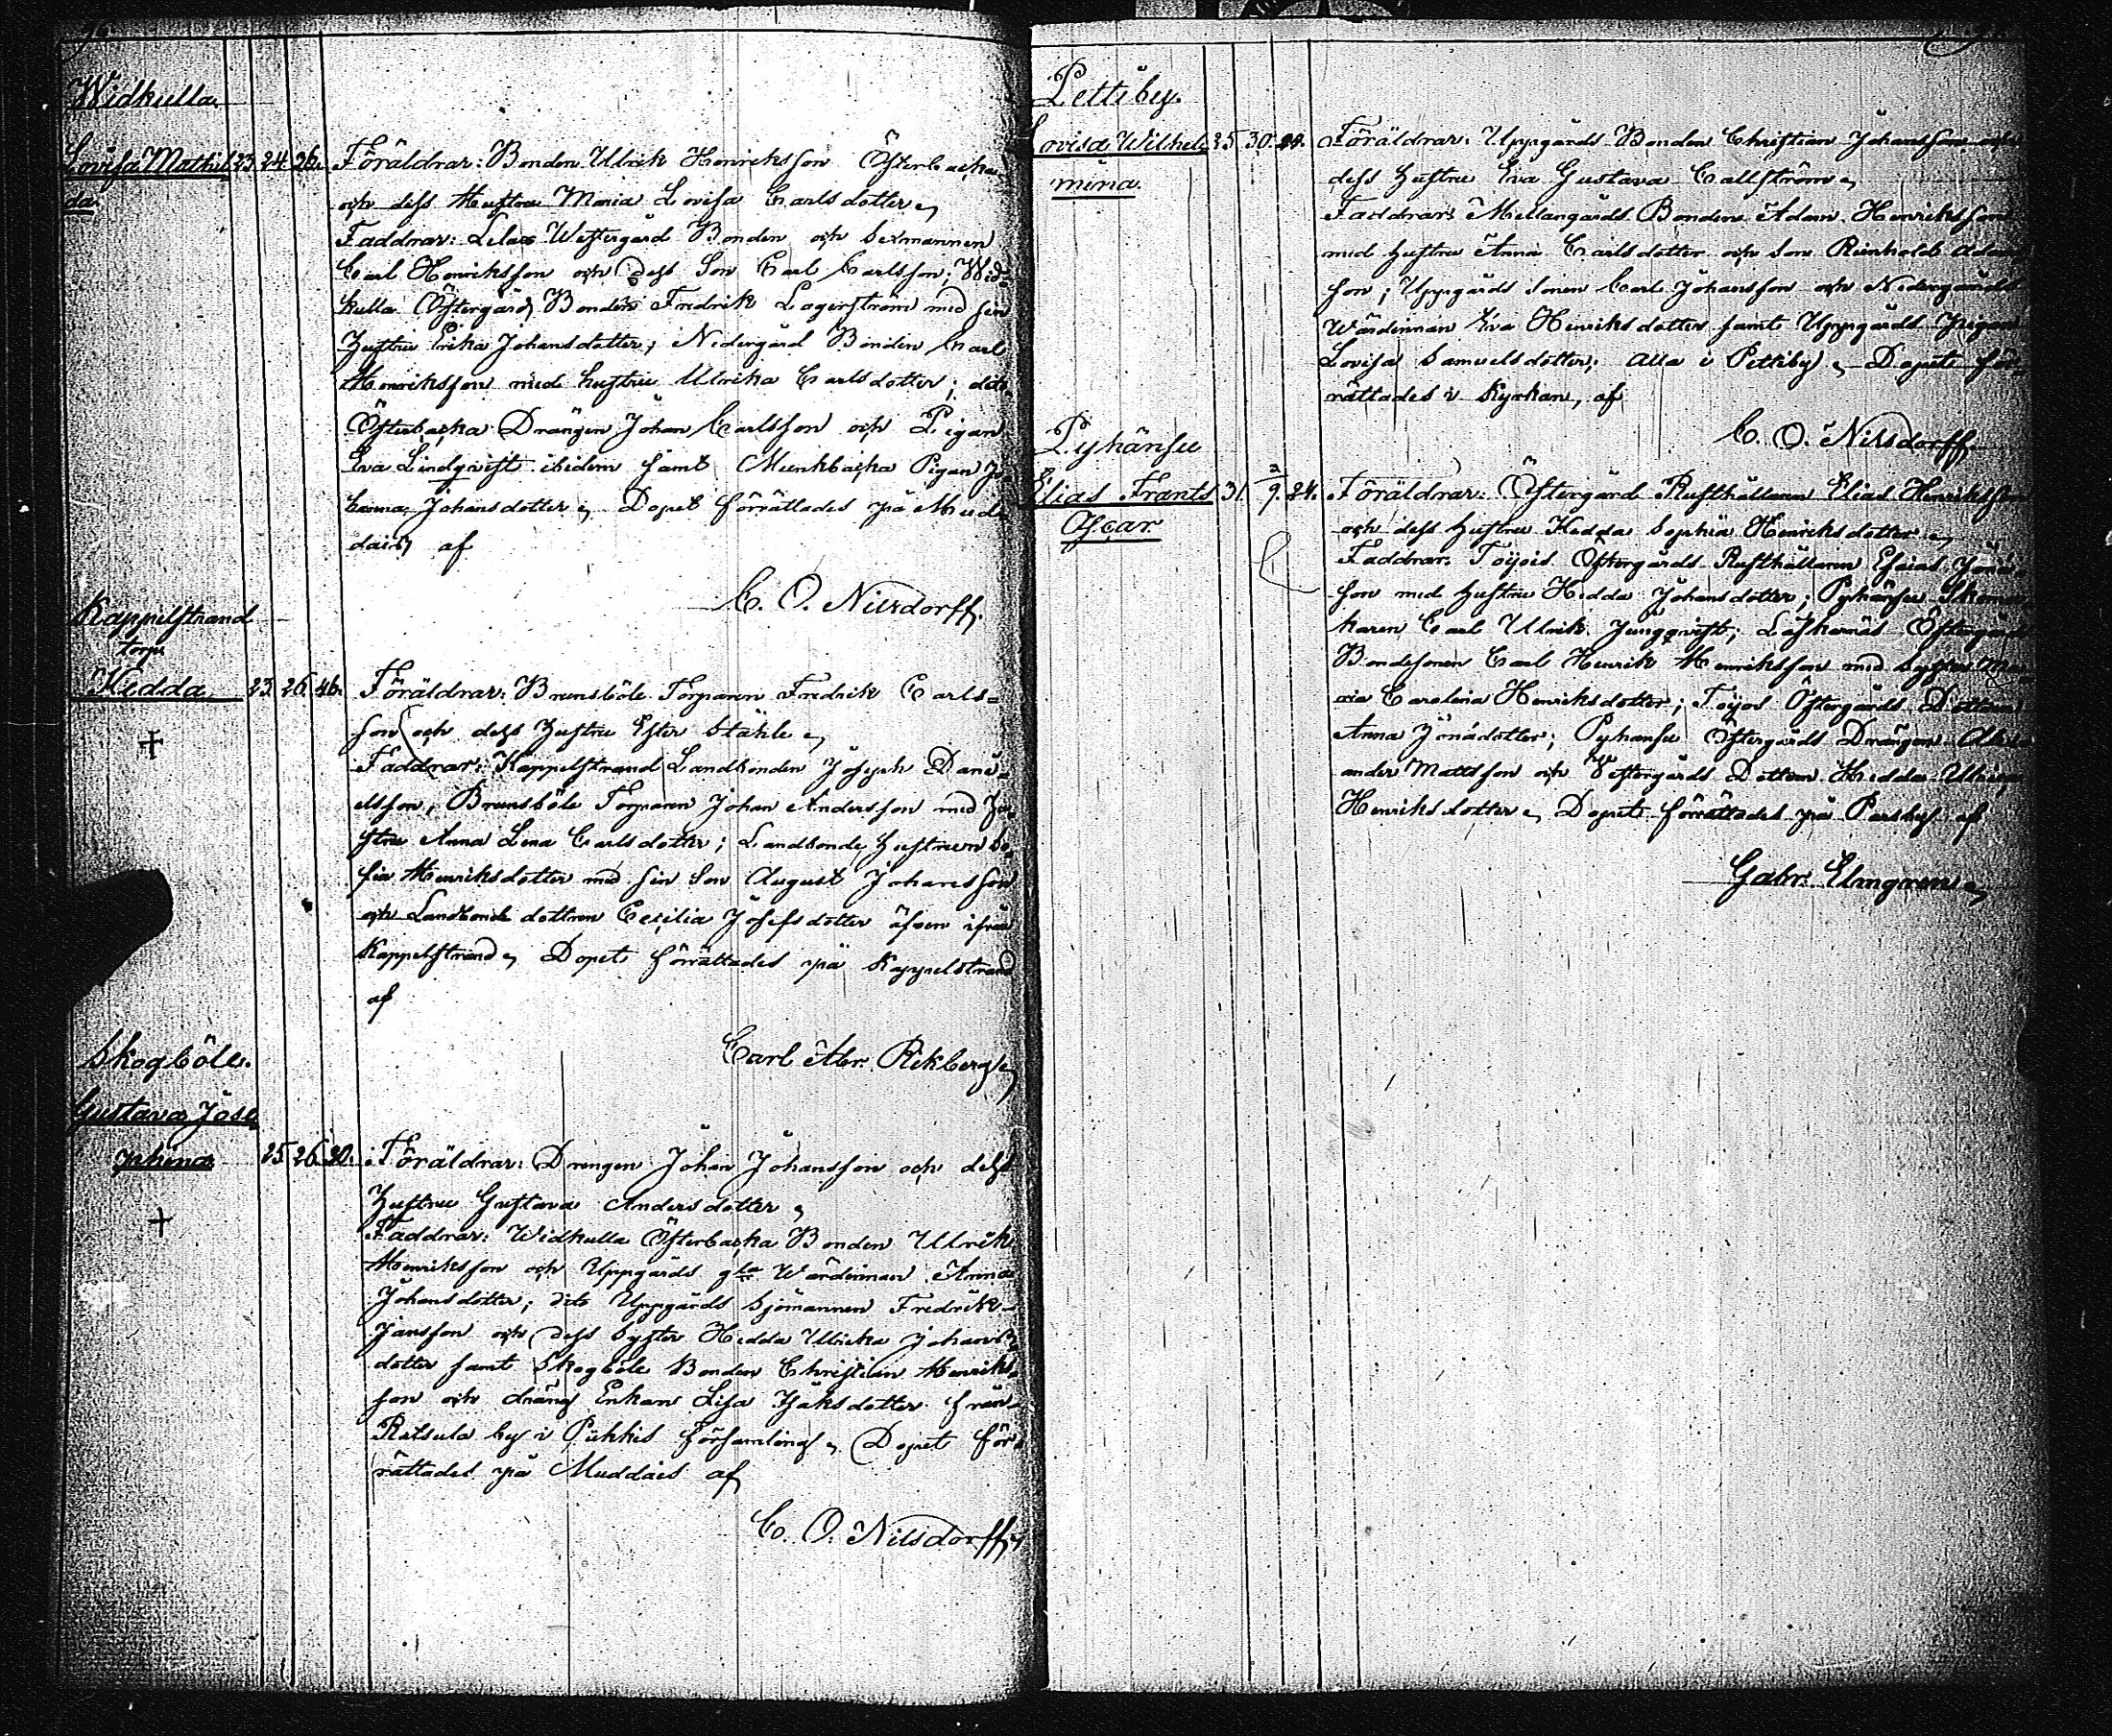 Widkulla
Lovisa Mathil 23. 24. 26. Föräldrar: Bonden Ulrik Henriksson Österbacka
da. och dess Hustru Maria Lovisa Carlsdotter
Faddrar: Lelax Westergård Bonden och Sexmannen
Carl Henriksson och dess Son Carl Carlsson; Wid-
kulla Östergård Bonden Fredrik Lagerström med sin
Hustru Erika Johansdotter; Nedergård Bonden Carl
Henriksson med hustru Ulrika Carlsdotter; dito
Österbacka Drängen Johan Carlsson och Pigan
Eva Lindqvist ibidem samt Munkbacka Pigan Jo-
hanna Johansdotter Dopet förrättades på Mud-
dais af
C. O. Nilsdorff.
Kappelstrand
torp
Hedda 23. 26. 46. Föräldrar: Brunsböle Torparen Fredrik Carls-
son och dess Hustru Ester Ståhle
Faddrar: Kappelstrand Landbonden Joseph Dani-
elsson, Brunsböle Torparen Johan Andersson med Hu-
stru Anna Lena Carlsdotter; Landbonde Hustrun So-
fia Henriksdotter med sin Son August Johansson
och Landbonde dottren Cecilia Josefsdotter äfven ifrån
Kappelstrand Dopet förrättades på Kappelstrand
af
Carl Abr. Rekberg
Skogböle.
Gustava Jose
phina 25. 26. 20. Föräldrar: Drengen Johan Johansson och dess
Hustru Gustava Andersdotter
Faddrar: Widkulla Österbacka Bonden Ulrik
Henriksson och Uppgårds gla Wärdinnan Anna
Johansdotter; dito Uppgårds Sjömannen Fredrik
Jansson och dess Syster Hedda Ulrika Johans
dotter samt Skogböle Bonden Christian Henriks-
son och dräng Enkan Lisa Isaksdotter från
Ritsula by i Piikkis församling Dopet för-
rättades på Muddais af
C. O. Nilsdorff
Pettiby.
Lovisa Wilhel 25 30. 29. Föräldrar: Uppgårds Bonden Christian Johansson och
mina. dess hustru Eva Gustava Callström
Faddrar: Mellangårds Bonden Adam Henriksson
med hustru Anna Carlsdotter och Son Reinhold Adams
son; Uppgårds Sonen Carl Johansson och Nedergårds
Wärdinnan Eva Henriksdotter samt Uppgårds Pigan
Lovisa Samuelsdotter; alla i Pettiby Dopet för-
rättades i Kyrkan, af
C. O. Nilsdorff
Pyhänsu
Elias Frants 31. 2/9. 24. Föräldrar: Östergård Rusthållaren Elias Henriksson
Oscar och dess hustru Hedda Sophia Henriksdotter
Faddrar: Töijois Östergårds Rusthållaren Esaias Jöns
son med hustru Hedda Johansdotter; Pyhänsu Skoma
karen Carl Ulrik Jungqvist; Laskarnäs Östergård
Bondesonen Carl Henrik Henriksson med Syster Ma
ria Carolina Henriksdotter; Töijos Östergårds Dottern
Anna Jönsdotter; Pyhänsu Östergårds Drängen Alex
ander Mattsson och Westergårds Dottern Hedda Ulrica
Henriksdotter Dopet förrättades på Parsby af
Gabr. Elmgren